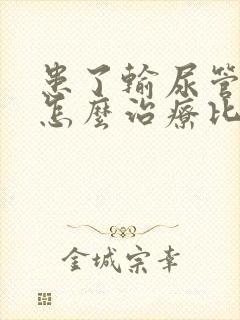 患了輸尿管
怎麼治療比
金城宗幸